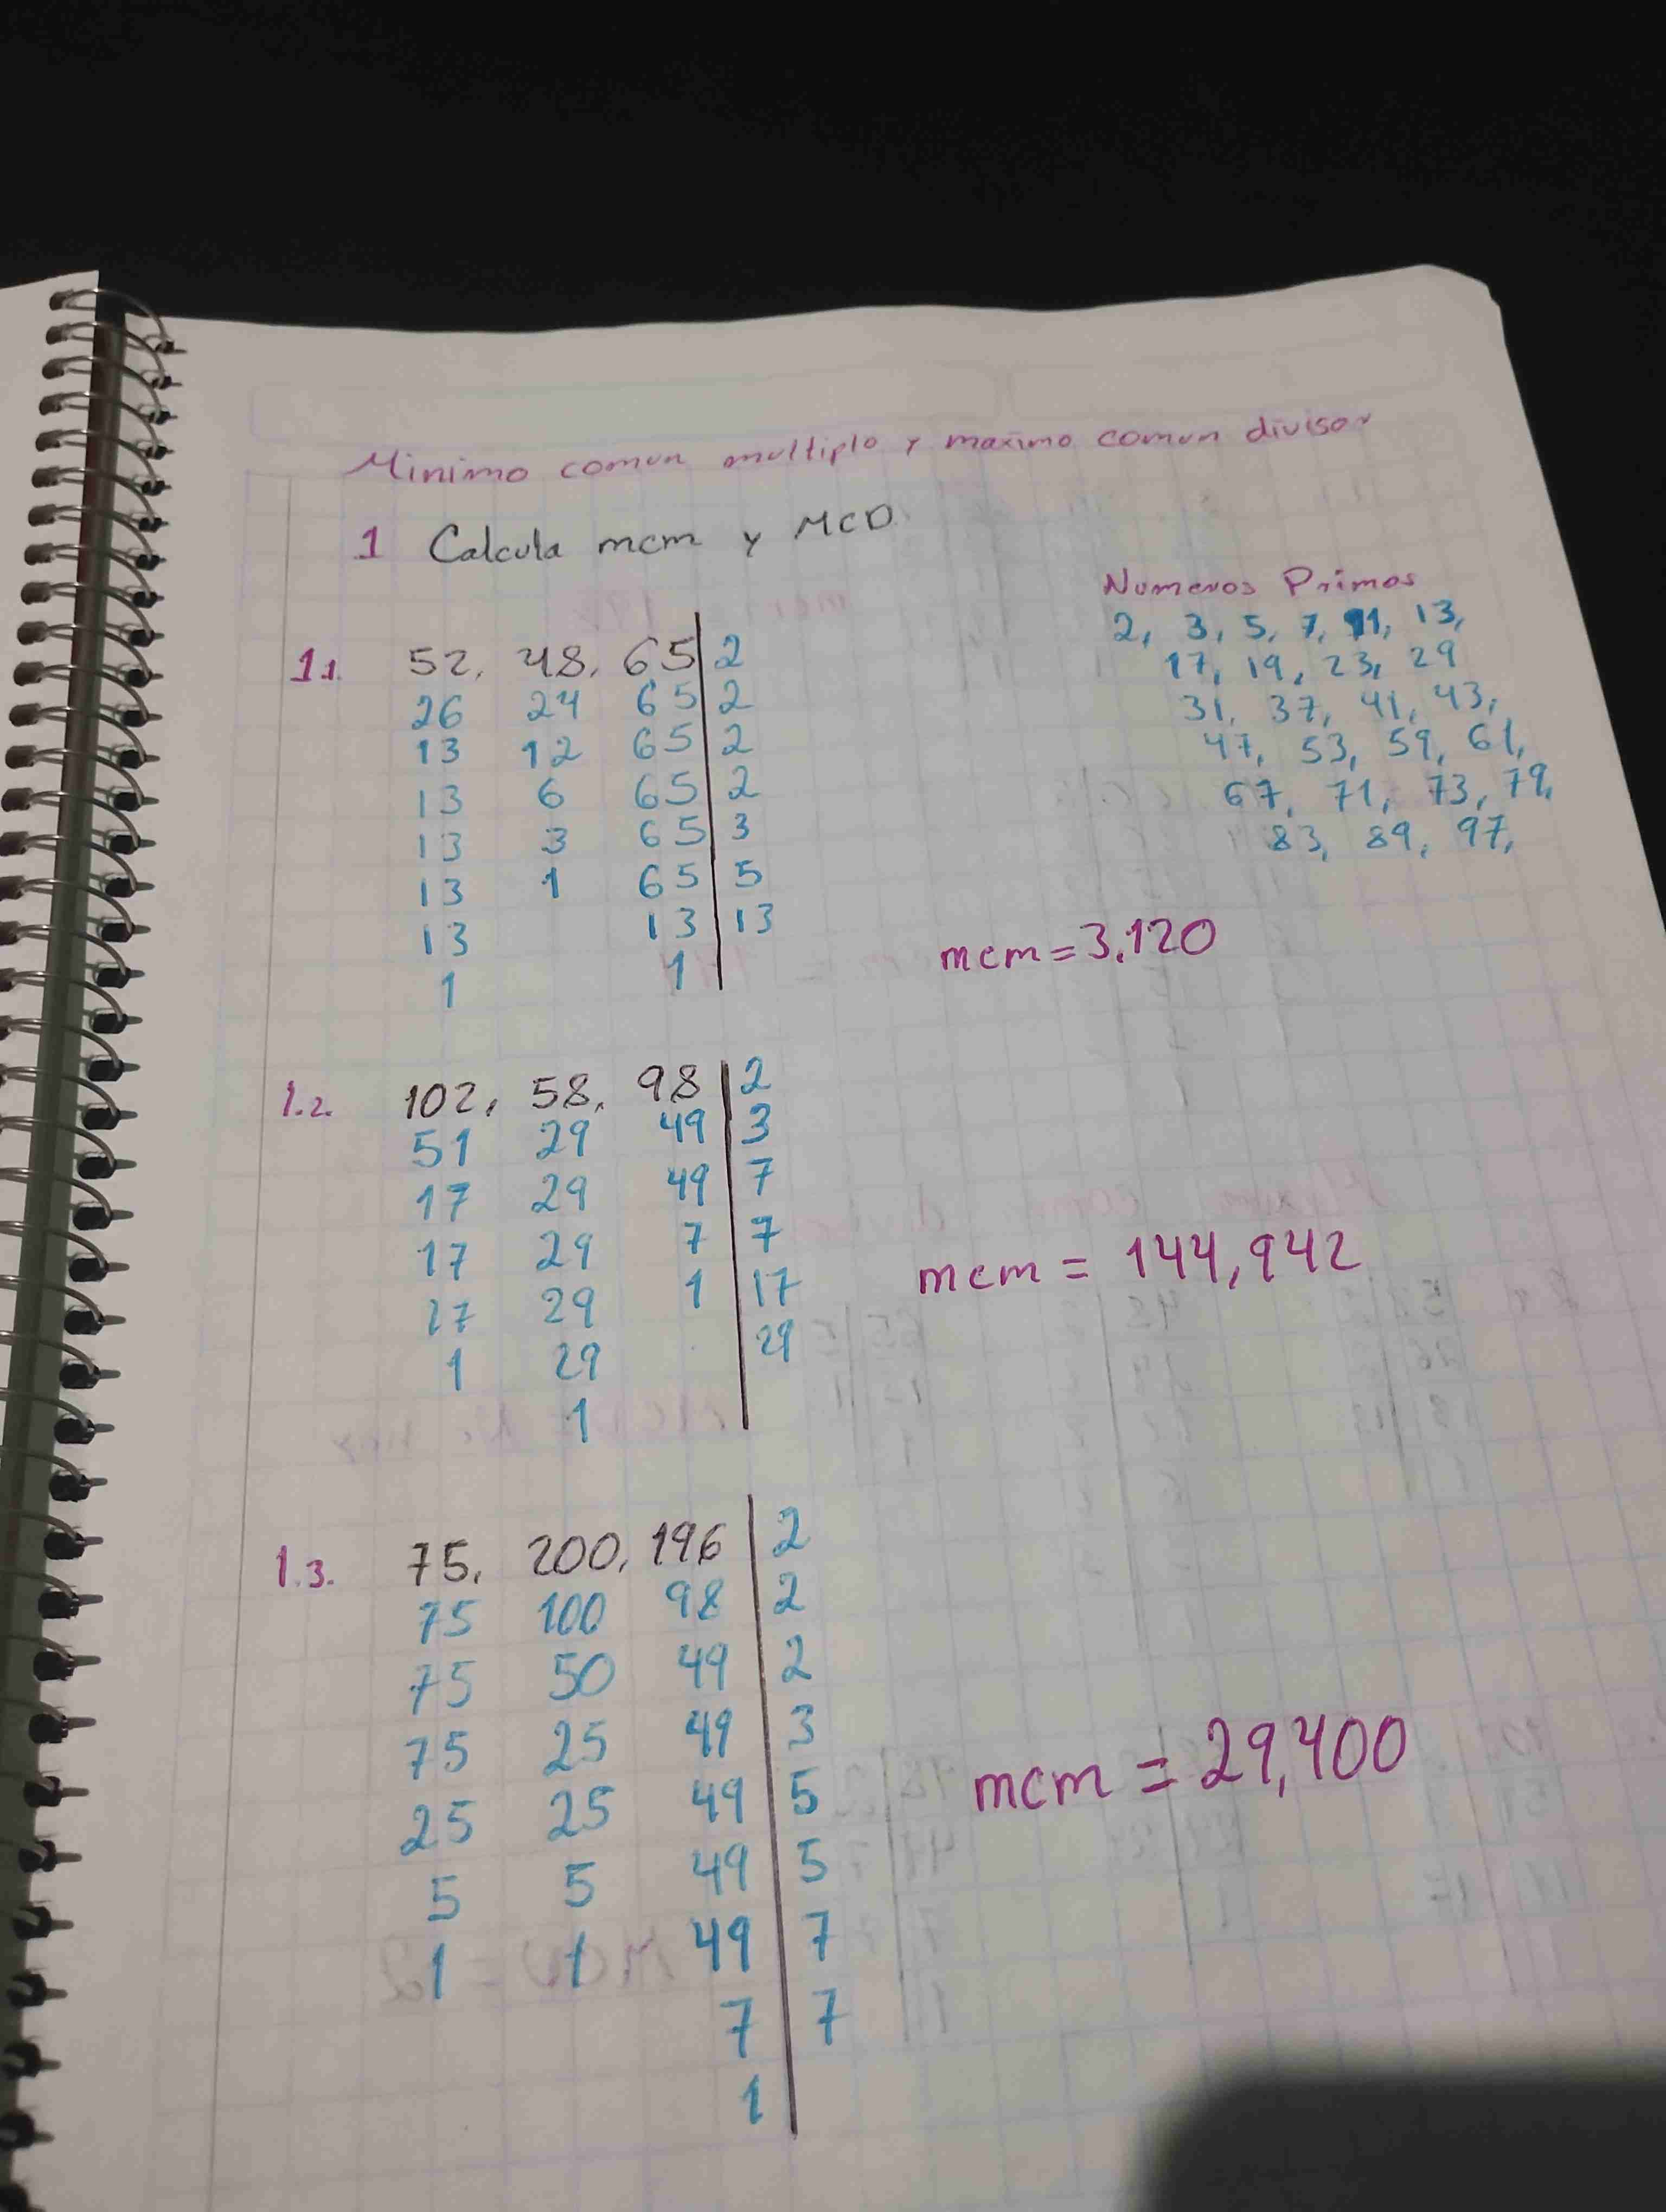 Minimo comun multiplo y maximo comun divisor
1 Calcula mcm y MCD
Numeros Primos
2, 3, 5, 7, 11, 13,
17, 19, 23, 29
31, 37, 41, 43,
47, 53, 59, 61,
67, 71, 73, 79,
83, 89, 97,
1.1. 52, 48, 65 2
26 24 65 2
13 12 65 2
13 6 65 2
13 3 65 3
13 1 65 5
13 13 13
1 1
mcm = 3,120
1.2. 102, 58, 98 2
51 29 49 3
17 29 49 7
17 29 7 7
17 29 1 17
1 29 29
1
mcm = 144,942
1.3. 75, 200, 196 2
75 100 98 2
75 50 49 2
75 25 49 3
25 25 49 5
5 5 49 5
1 1 49 7
7 7
1
mcm = 29,400